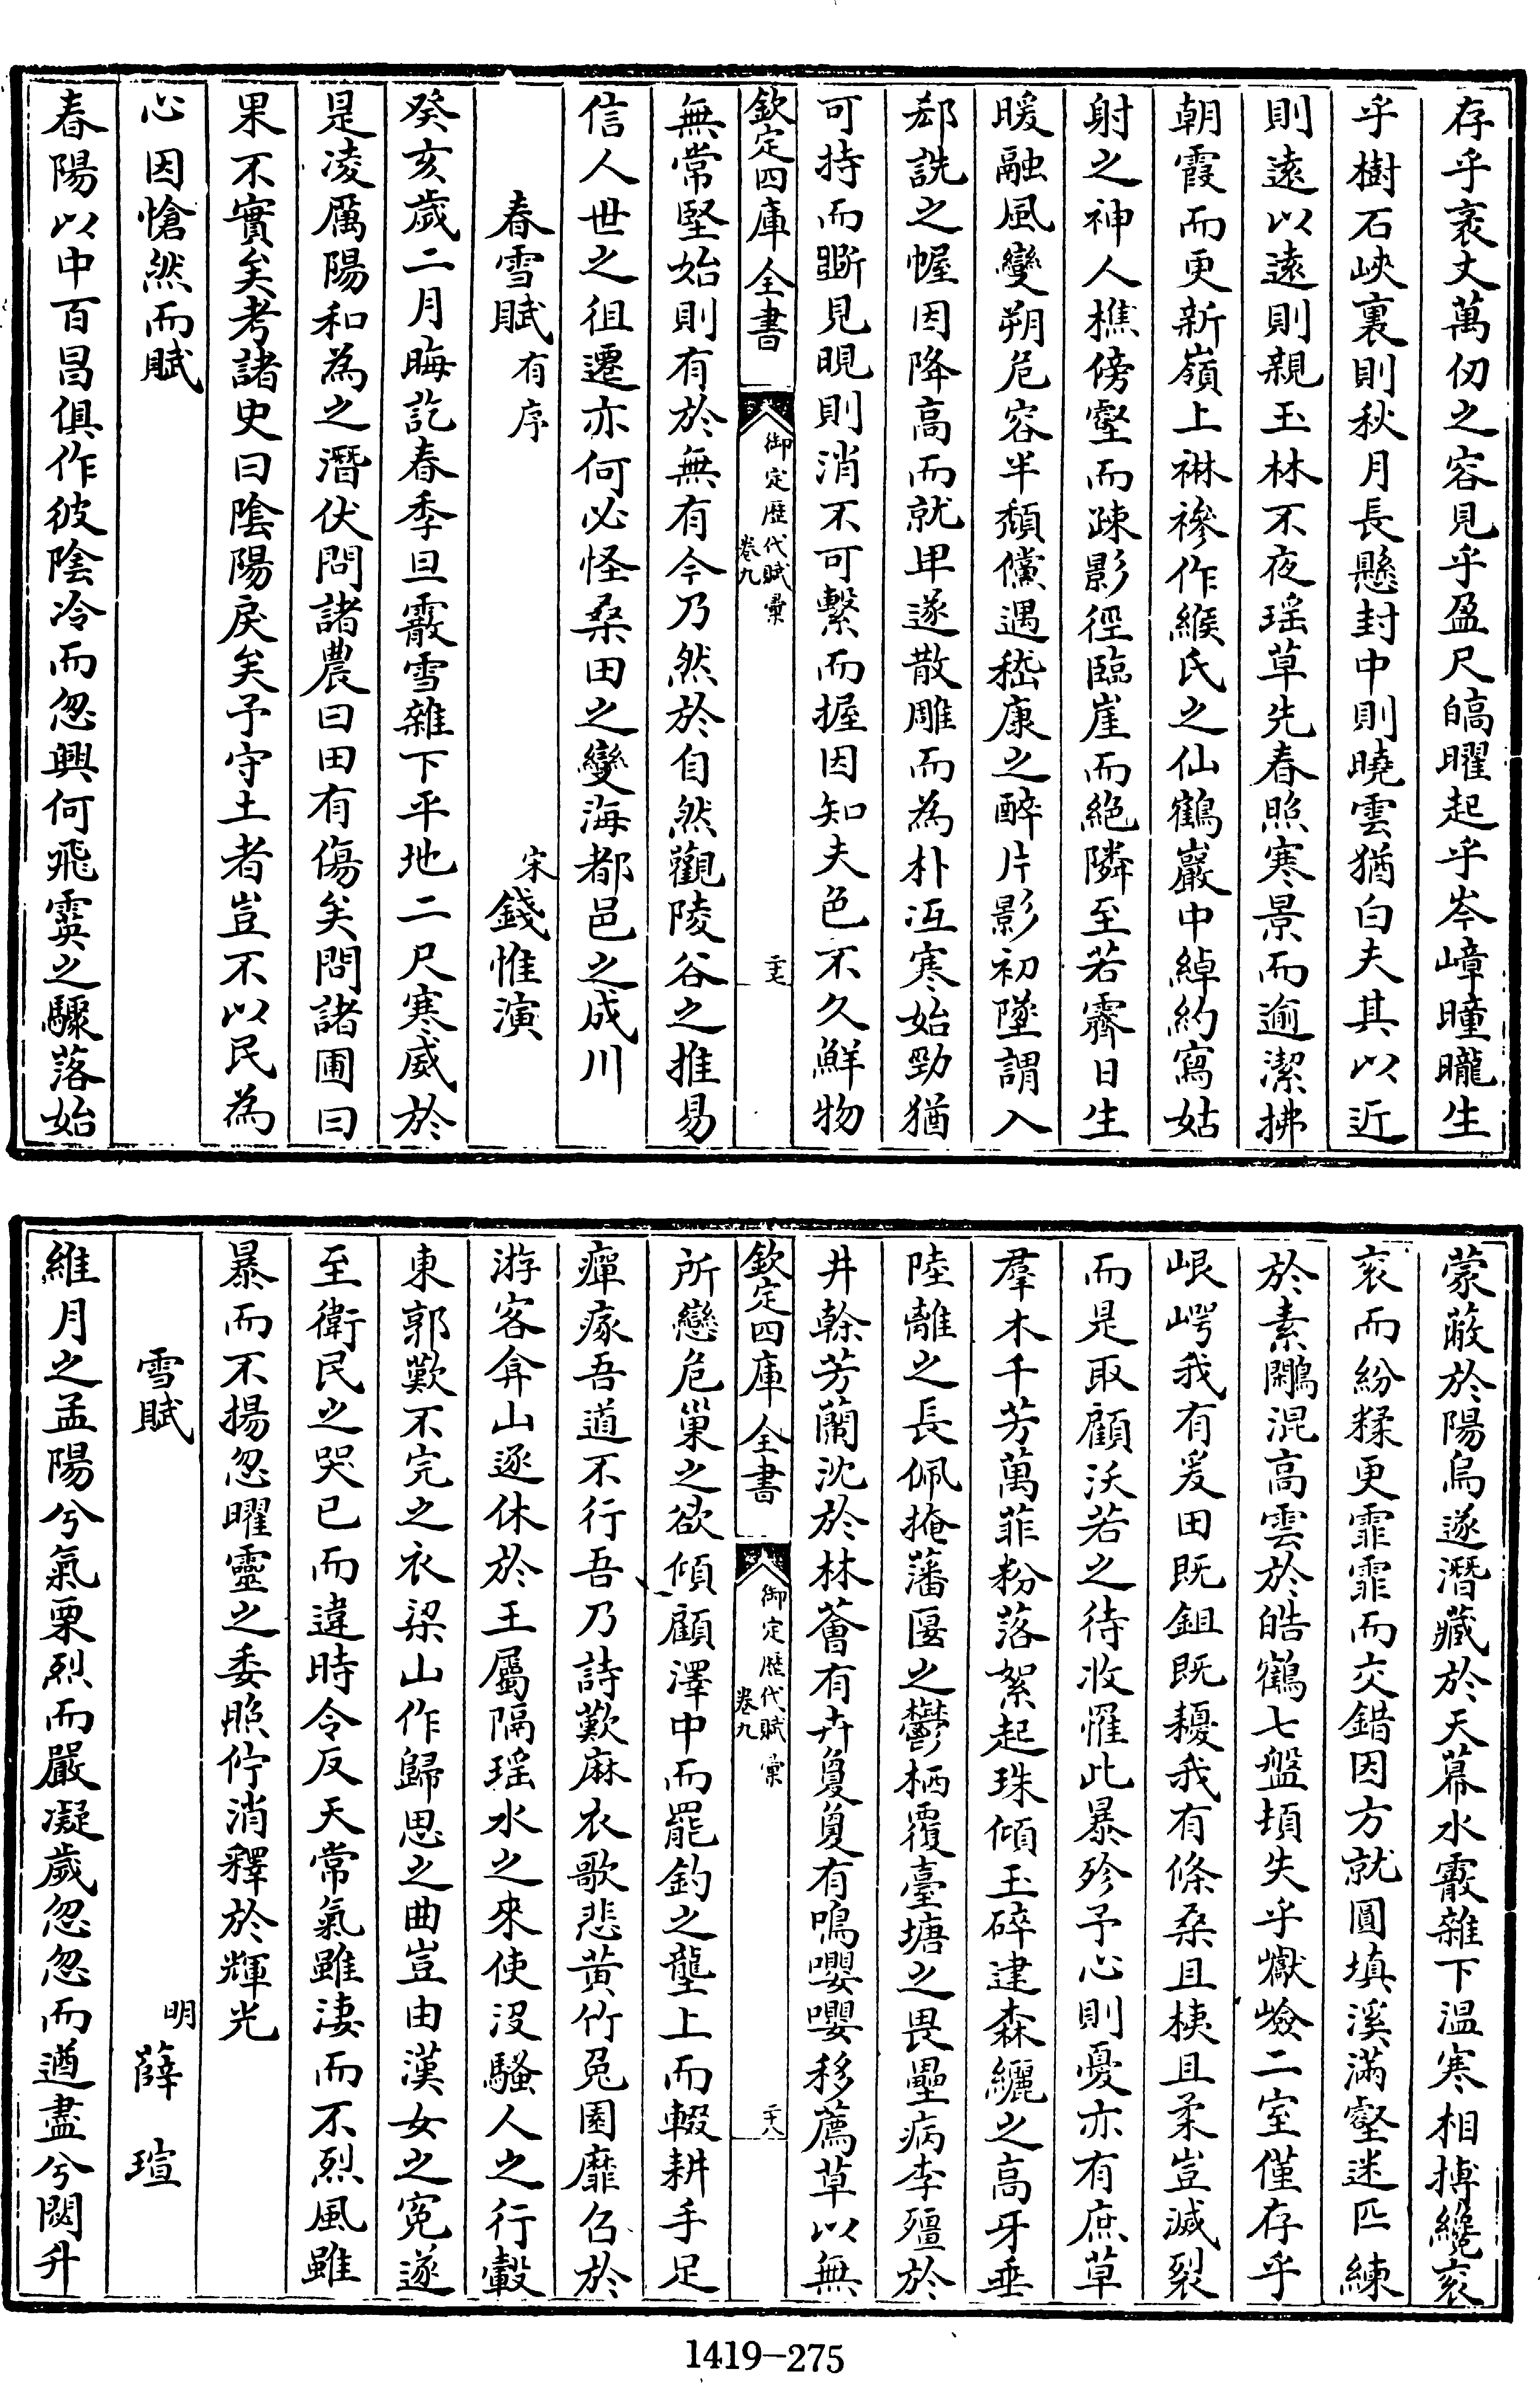 存乎袤丈萬仞之容見乎盈尺皜曜起乎岑嶂曈曨生
乎樹石峽裏則秋月長懸封中則曉雲猶白夫其以近
則遠以遠則親玉林不夜瑶草先春照寒景而逾潔拂
朝霞而更新嶺上綝縿作緱氏之仙鶴巖中綽約寫姑
射之神人樵傍壑而踈影徑臨崖而絶隣至若霽日生
暖融風變朔危容半頽儻遇嵇康之醉片影初墜謂入
郄詵之幄因降高而就卑遂散雕而為朴沍寒始勁猶
可持而斵見晛則消不可繫而握因知夫色不久鮮物
欽定四庫全書
御定歴代賦彙
卷九
二十七
無常堅始則有於無有今乃然於自然觀陵谷之推易
信人世之徂遷亦何必怪桑田之變海都邑之成川
春雪賦有序
宋錢惟演
癸亥歲二月晦訖春季旦霰雪雜下平地二尺寒威於
是凌厲陽和為之潛伏問諸農曰田有傷矣問諸圃曰
果不實矣考諸史曰陰陽戾矣予守土者豈不以民為
心因愴然而賦
春陽以中百昌俱作彼陰冷而忽興何飛霙之驟落始
蒙蔽於陽烏遂潛藏於天幕水霰雜下温寒相搏纔袤
袤而紛糅更霏霏而交錯因方就圓填溪滿壑迷匹練
於素鷴混高雲於皓鶴七盤頓失乎巘嶮二室僅存乎
崐崿我有爰田既鉏既耰我有條桑且桋且柔豈滅裂
而是取顧沃若之待收罹此暴殄予心則憂亦有庶草
羣木千芳萬菲粉落絮起珠傾玉碎建森纚之高牙垂
陸離之長佩掩藩匽之鬱栖覆臺塘之畏壘病李殭於
井榦芳蘭沈於林薈有卉夐夐有鳴嚶嚶移薦草以無
欽定四庫全書
御定歴代賦彙
卷九
二十八
所戀危巢之欲傾顧澤中而罷釣之壟上而輟耕手足
瘴瘃吾道不行吾乃詩歎麻衣歌悲黄竹兔園靡召於
游客弇山遂休於王屬隔瑶水之來使沒騷人之行轂
東郭歎不完之衣梁山作歸思之曲豈由漢女之寃遂
至衛民之哭已而違時令反天常氣雖淒而不烈風雖
暴而不揚忽曜靈之委照佇消釋於輝光
雪賦
明薛瑄
維月之孟陽兮氣栗烈而嚴凝歲忽忽而遒盡兮閟升
1419-275